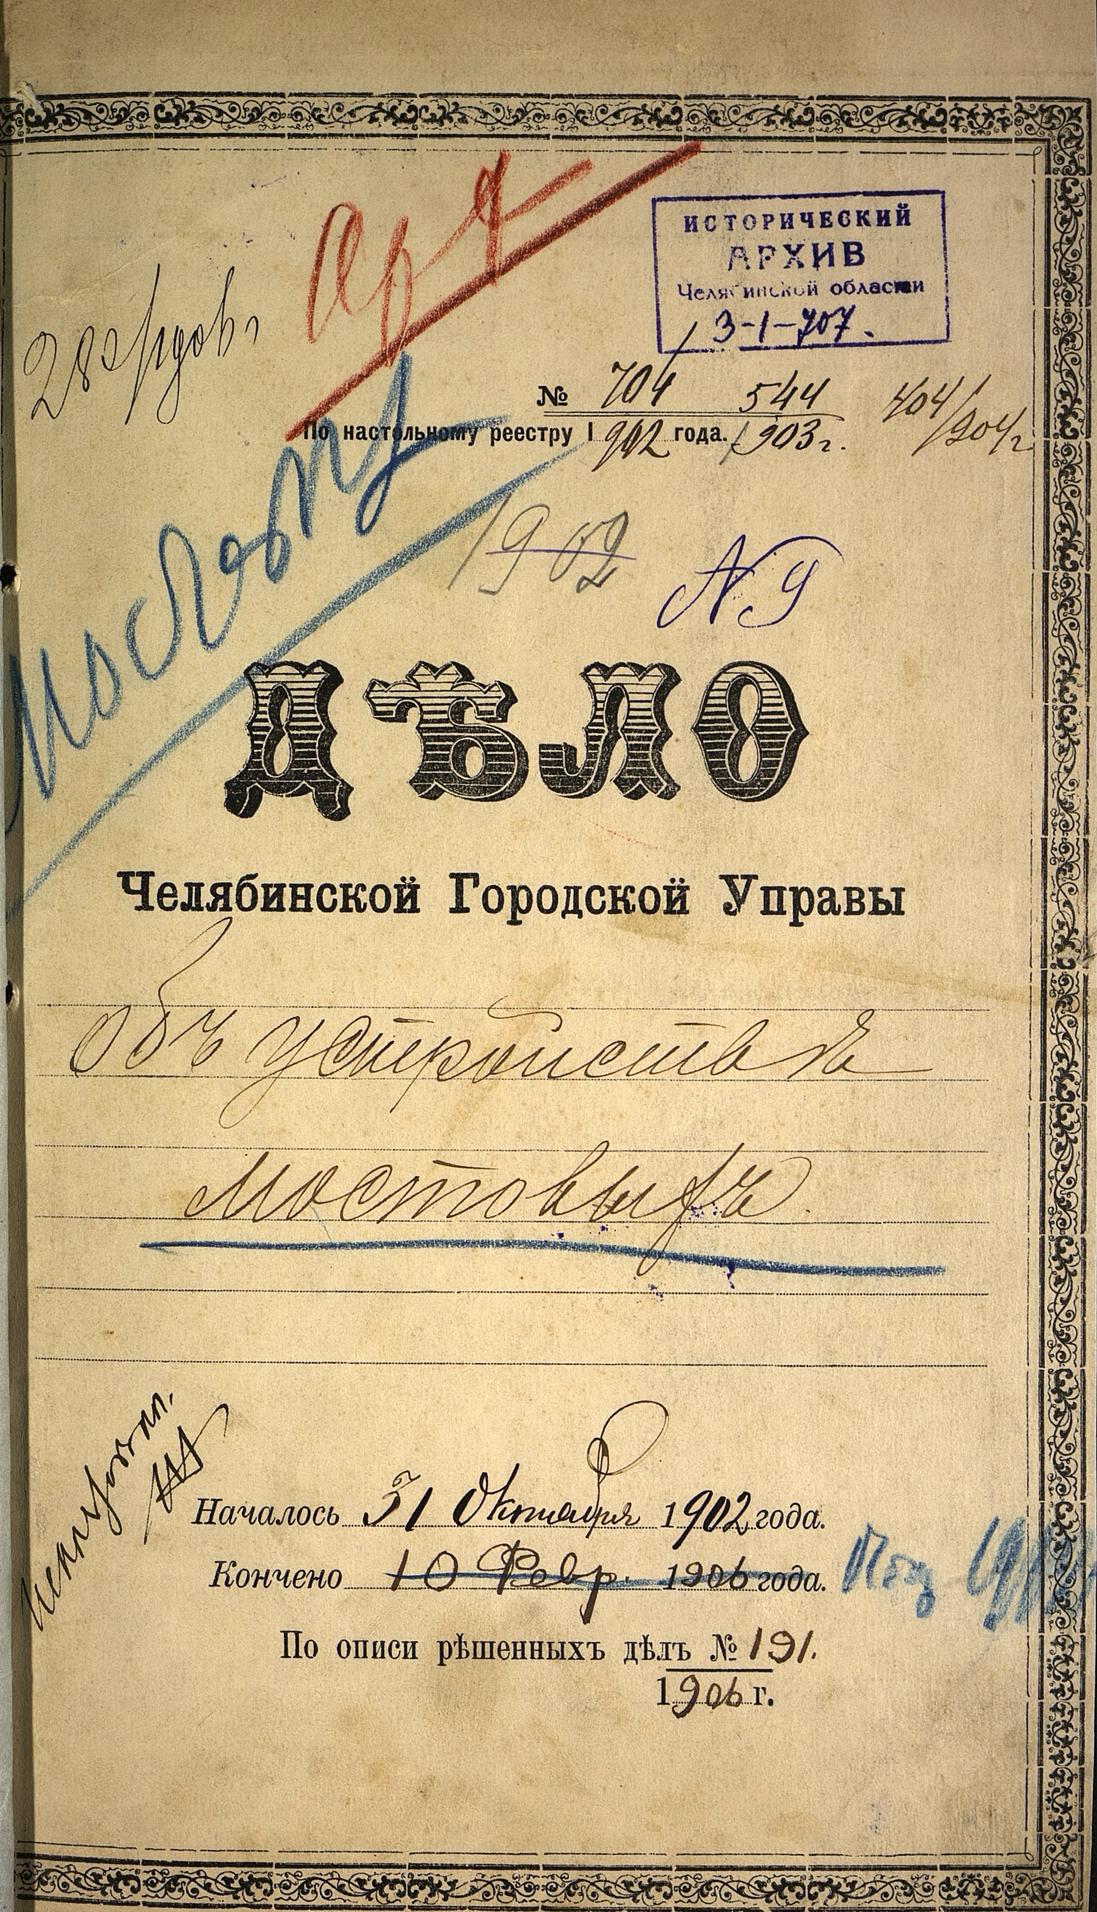 ИСТОРИЧЕСКИЙ
АРХИВ
Челябинской области
3-1-707.
№ 704 544 404/904 г
По настольному реестру 1902 года. 1903 г.
1902
N 9
ДѢЛО
Челябинской Городской Управы
объ устройствѣ
мостовыхъ.
Началось 31 Октября 1902 года.
Кончено 10 Февр. 1906 года.
По описи рѣшенныхъ дѣлъ № 191.
1906 г.